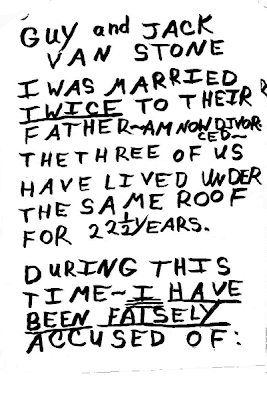 GUY and JACK
VAN STONE
I WAS MARRIED
TWICE TO THEIR
FATHER~AM NOW DIVOR
CED~
THE THREE OF US
HAVE LIVED UNDER
THE SAME ROOF
FOR 22½ YEARS.
DURING THIS
TIME~I HAVE
BEEN FALSELY
ACCUSED OF: